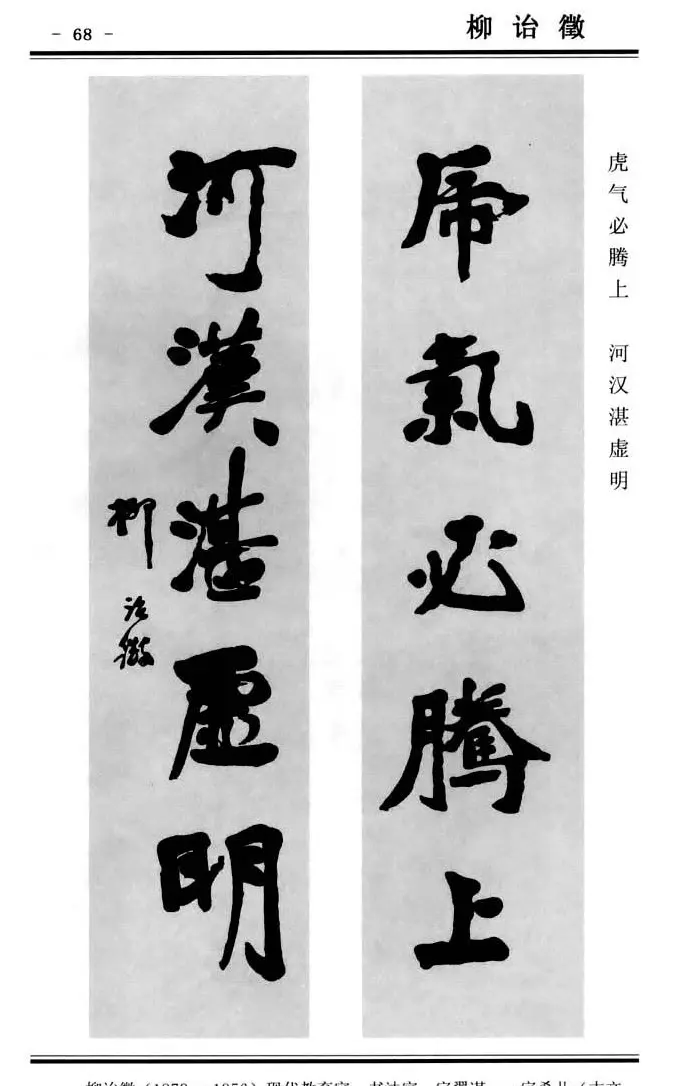 - 68 -
柳诒徵
虎气必腾上 河汉湛虚明
虎氣必騰上
河漢湛虛明
柳诒徵